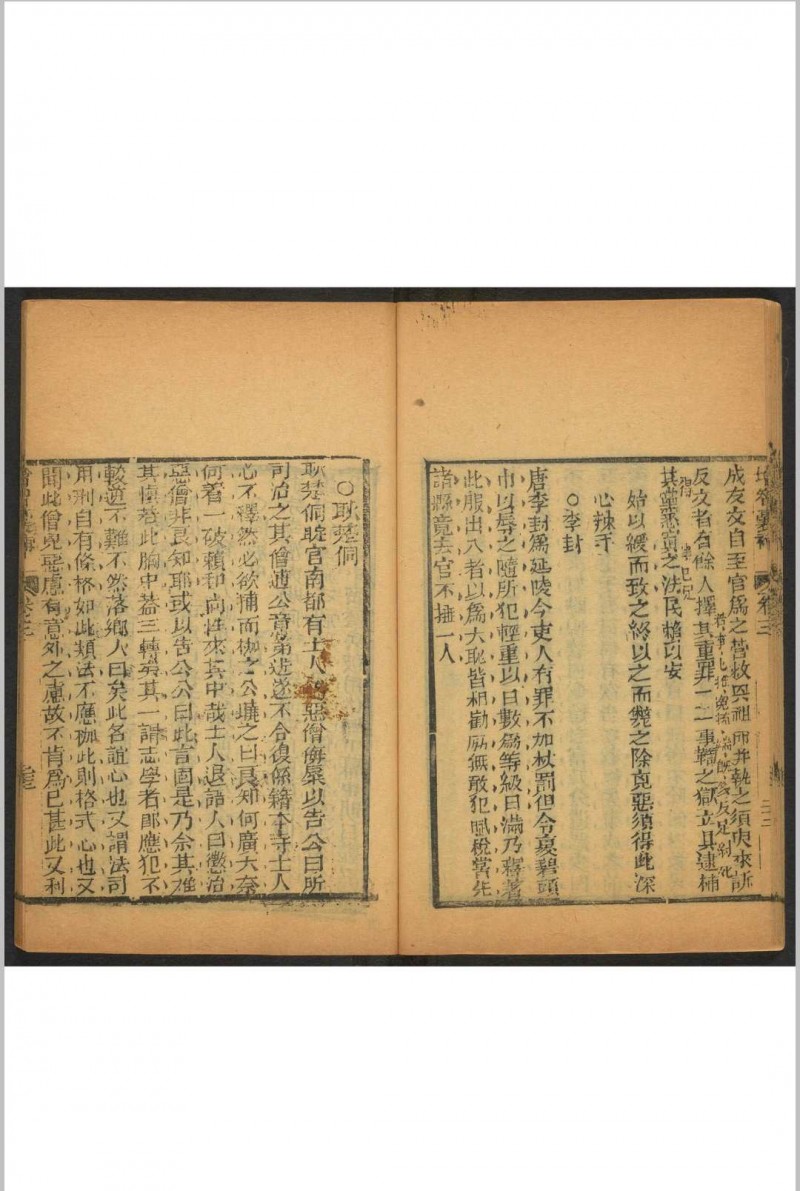 增智囊補 卷三
成友文自至官爲之營救與祖而并執之須臾來訴
反文者有餘人擇其重罪一二事鞫之獄立具逮捕
其黨悉寘之法民格以安
始以緩而致之終以之而斃之除克惡須得此深
心辣手
○李封
唐李封爲延陵令吏人有罪不加杖罰但令裹碧頭
巾以辱之隨所犯輕重以日數爲等級日滿乃釋著
此服出入者以爲大恥皆相勸勵無敢犯賦稅常先
諸縣竟去官不捶一人
○耿楚侗
耿楚侗官南都有士人惡僧侮慢以告公曰所
司治之其僧逋公意第逬遂不令復係籍本寺士人
心不懌然必欲捕而枷之公曉之曰良知何廣大奈
何着一破賴和尚往來其中哉士人退語人曰懲治
惡僧非良知耶或以告公公曰此言固是乃余其難
其愼若此胸中葢三轉矣其一謂志學者卽應犯不
較逆不難不然落鄉人曰矣此名誼心也又謂法司
用刑自有條格如此類法不應枷此則格式心也又
聞此僧兇惡慮有意外之虞故不肯爲已甚此又利